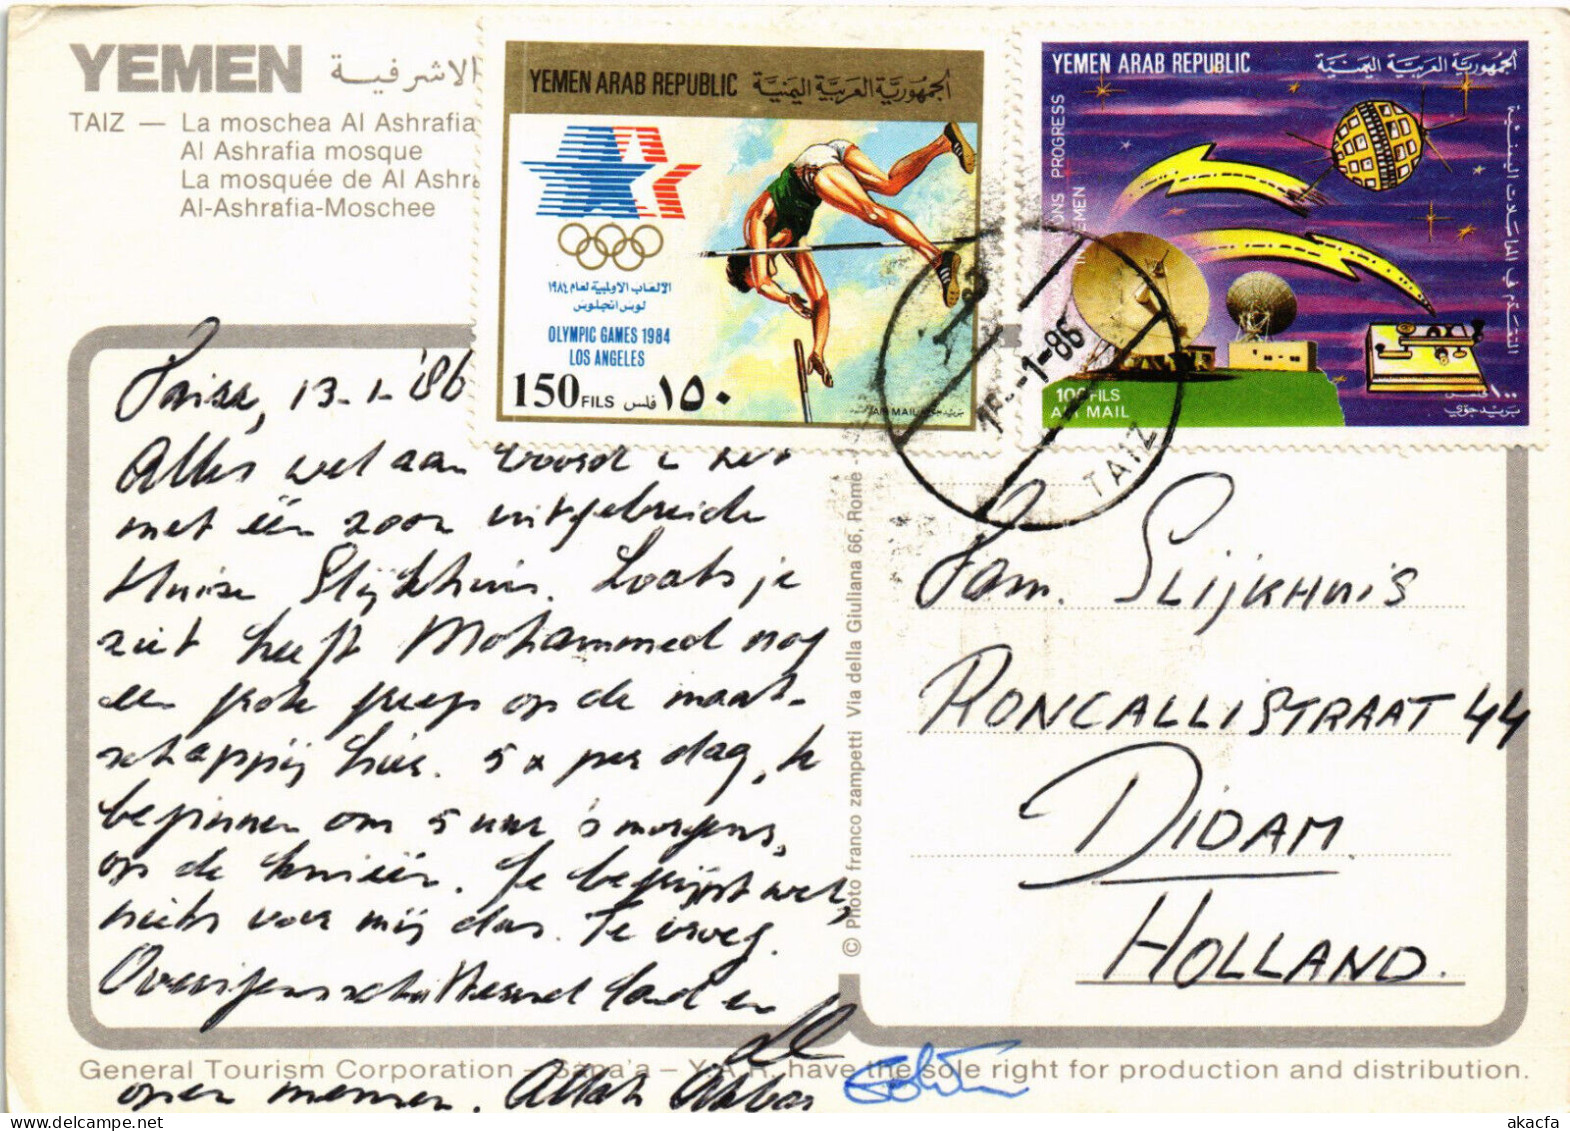 YEMEN الاشرفية
TAIZ — La moschea Al Ashrafia
Al Ashrafia mosque
La mosquée de Al Ashr
Al-Ashrafia-Moschee
YEMEN ARAB REPUBLIC الجمهورية العربية اليمنية
الالعاب الاولمبية لعام ١٩٨٤
لوس انجلوس
OLYMPIC GAMES 1984
LOS ANGELES
150 FILS فلس ١٥٠
AIR MAIL بريد جوي
YEMEN ARAB REPUBLIC الجمهورية العربية اليمنية
IONS PROGRESS
IN YEMEN
التقدم في المواصلات اليمنية
100 FILS
AIR MAIL
١٠٠ فلس
بريد جوي
-1-86
TAIZ
13-1-'86
Alles wel aan boord
met één zoon uitgebreide
Huize Slijkhuis. Zoals je
ziet heeft Mohammed nog
een grote groep op de maat-
schappij hier. 5 x per dag, te
beginnen om 5 uur 's morgens,
op de knieën. Je begrijpt wel,
niets voor mij dus. Te vroeg.
Overigens schitterend land en
open mensen. Allah Akbar
Fam. SLIJKHUIS
RONCALLISTRAAT 44
DIDAM
HOLLAND.
© Photo franco zampetti Via della Giuliana 66, Rome -
General Tourism Corporation – Sana'a – Y.A.R. have the sole right for production and distribution.
akacfa